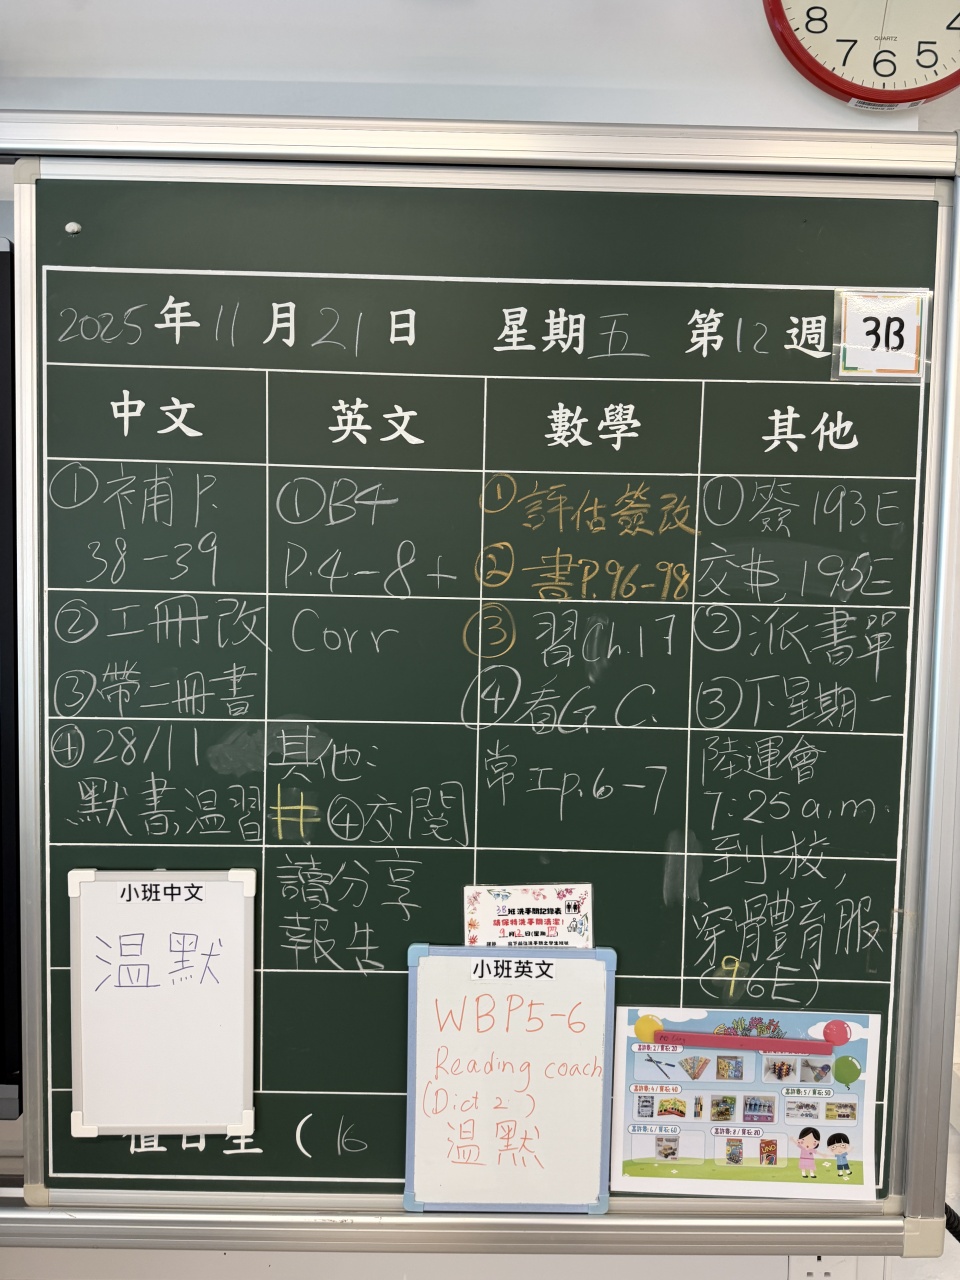 8 7 6 5 4
QUARTZ
2025年11月21日 星期五 第12週 3B
中文 英文 數學 其他
①補P.
38-39
②工冊改
③帶二冊書
④28/11
默書,溫習
①B4
P.4-8+
Corr
其他:
井④交閱
讀分享
報告
①評估簽改
②書P.96-98
③習Ch.17
④看G.C.
常工p.6-7
①簽193E
交 195E
②派書單
③下星期一
陸運會
7:25a.m.
到校,
穿體育服
(96E)
小班中文
溫默
3B班洗手間記錄表
請保持洗手間清潔!
小班英文
WBP5-6
Reading coach
(Dict 2)
溫默
UNO
值日生(16